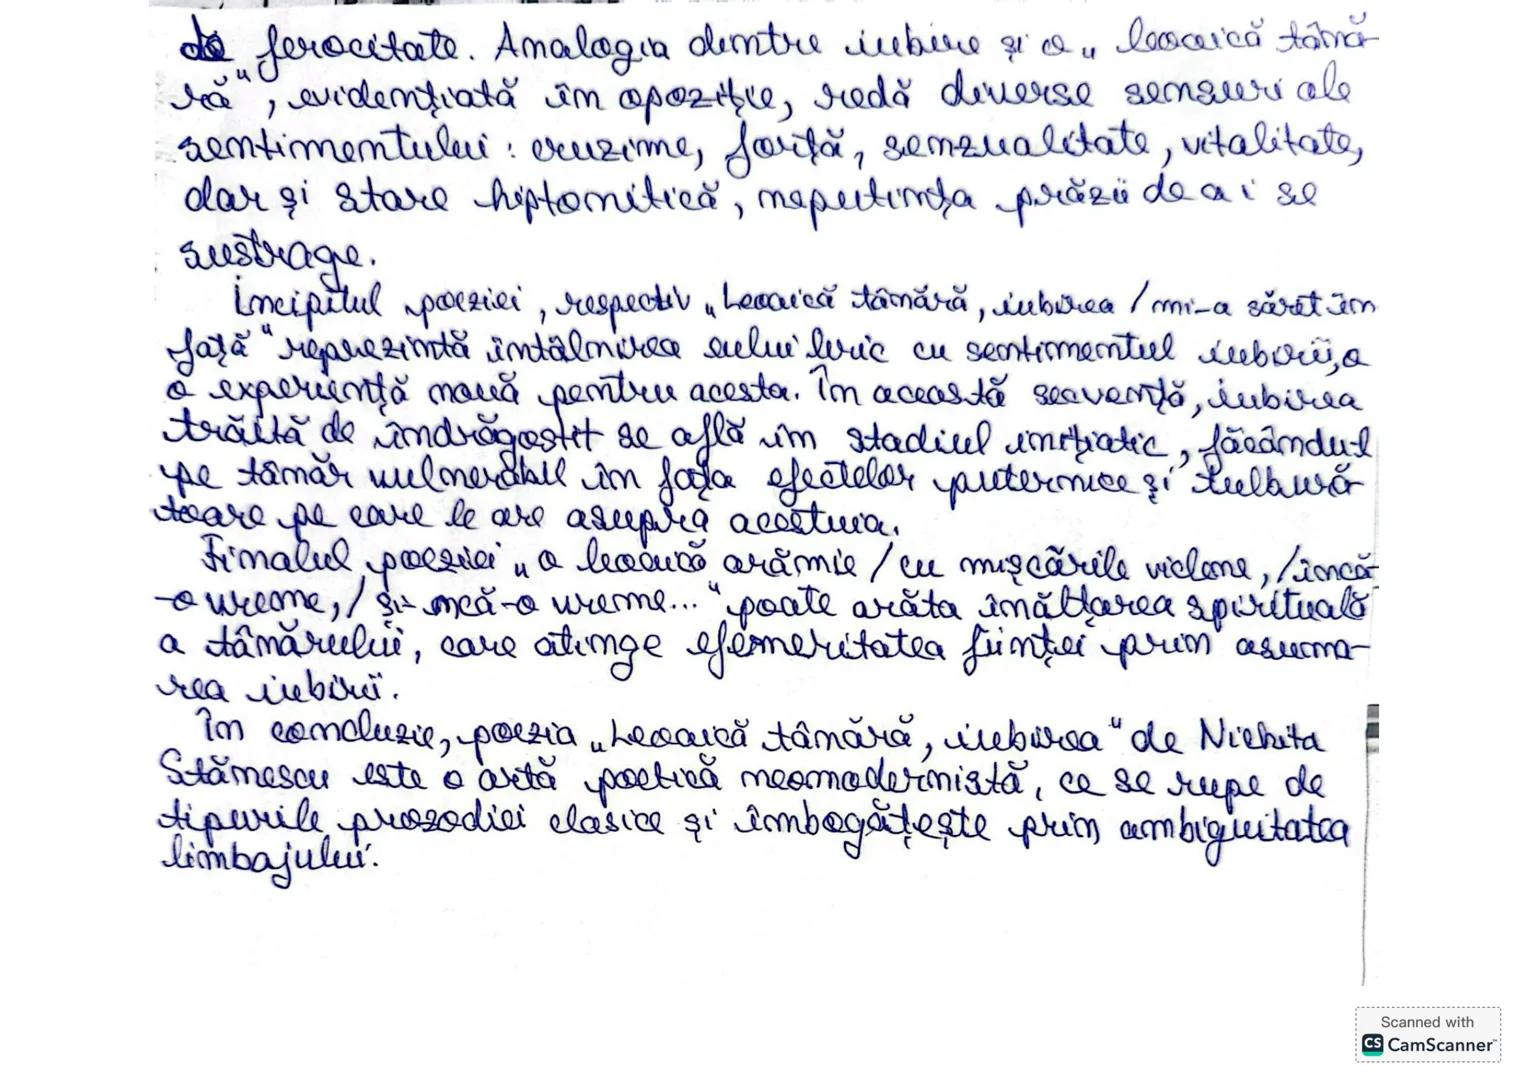 de ferocitate. Analogia dintre iubire și o „leoaică tână-
ră", evidențiată în opoziție, redă diverse sensuri ale
sentimentului: cruzime, forță, senzualitate, vitalitate,
dar și stare hiptonitică, neputința prăzii de a i se
sustrage.
Incipitul poeziei, respectiv „Leoaică tânără, iubirea / mi-a sărit în
față" reprezintă întâlnirea eului liric cu sentimentul iubirii, o
o experiență nouă pentru acesta. În această secvență, iubirea
trăită de îndrăgostit se află în stadiul inițiatic, făcându-l
pe tânăr vulnerabil în fața efectelor puternice și tulbură
toare pe care le are asupra acestuia.
Finalul poeziei „o leoaică arămie / cu mișcările viclene, / încă-
-o vreme, / și-ncă-o vreme..." poate arăta înălțarea spirituală
a tânărului, care atinge efemeritatea ființei prin asuma-
rea iubirii.
În concluzie, poezia „Leoaică tânără, iubirea" de Nichita
Stănescu este o artă poetică neomodernistă, ce se rupe de
tipurile prozodiei clasice și îmbogățește prin ambiguitatea
limbajului.
Scanned with
CS CamScanner